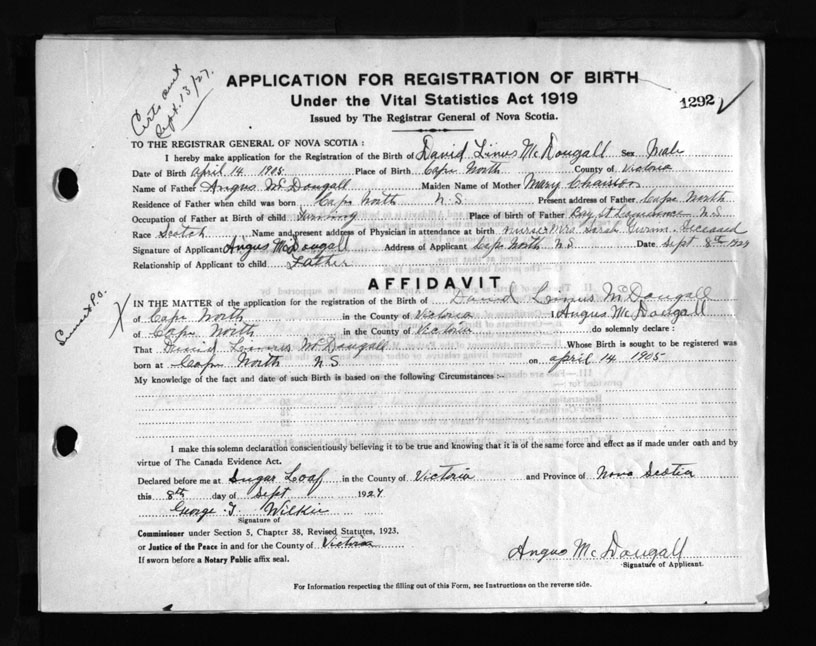 Certs sent
Sept. 13/27.
APPLICATION FOR REGISTRATION OF BIRTH
Under the Vital Statistics Act 1919
1292
Issued by The Registrar General of Nova Scotia.
TO THE REGISTRAR GENERAL OF NOVA SCOTIA:
I hereby make application for the Registration of the Birth of David Linus McDougall Sex Male
Date of Birth april 14 1905 Place of Birth Cape North County of Victoria
Name of Father Angus McDougall Maiden Name of Mother Mary Chaisson
Residence of Father when child was born Cape North N.S. Present address of Father Cape North
Occupation of Father at Birth of child Farming Place of birth of Father Bay St Lawrence N.S.
Race Scotch Name and present address of Physician in attendance at birth nurse Mrs Sarah Deceased
Signature of Applicant Angus McDougall Address of Applicant Cape North N.S Date Sept 8th 1927
Relationship of Applicant to child Father
AFFIDAVIT
IN THE MATTER of the application for the registration of the Birth of David Linus McDougall
of Cape North in the County of Victoria I Angus McDougall
of Cape North in the County of Victoria do solemnly declare:
That David Linnus McDougall Whose Birth is sought to be registered was
born at Cape North N.S on april 14 1905
My knowledge of the fact and date of such Birth is based on the following Circumstances:-
I make this solemn declaration conscientiously believing it to be true and knowing that it is of the same force and effect as if made under oath and by
virtue of The Canada Evidence Act.
Declared before me at Sugar Loaf in the County of Victoria and Province of Nova Scotia
this 8th day of Sept 1927
George T. Wilkie
Signature of
Commissioner under Section 5, Chapter 38, Revised Statutes, 1923.
or Justice of the Peace in and for the County of Victoria
If sworn before a Notary Public affix seal.
Angus McDougall
Signature of Applicant.
For Information respecting the filling out of this Form, see Instructions on the reverse side.